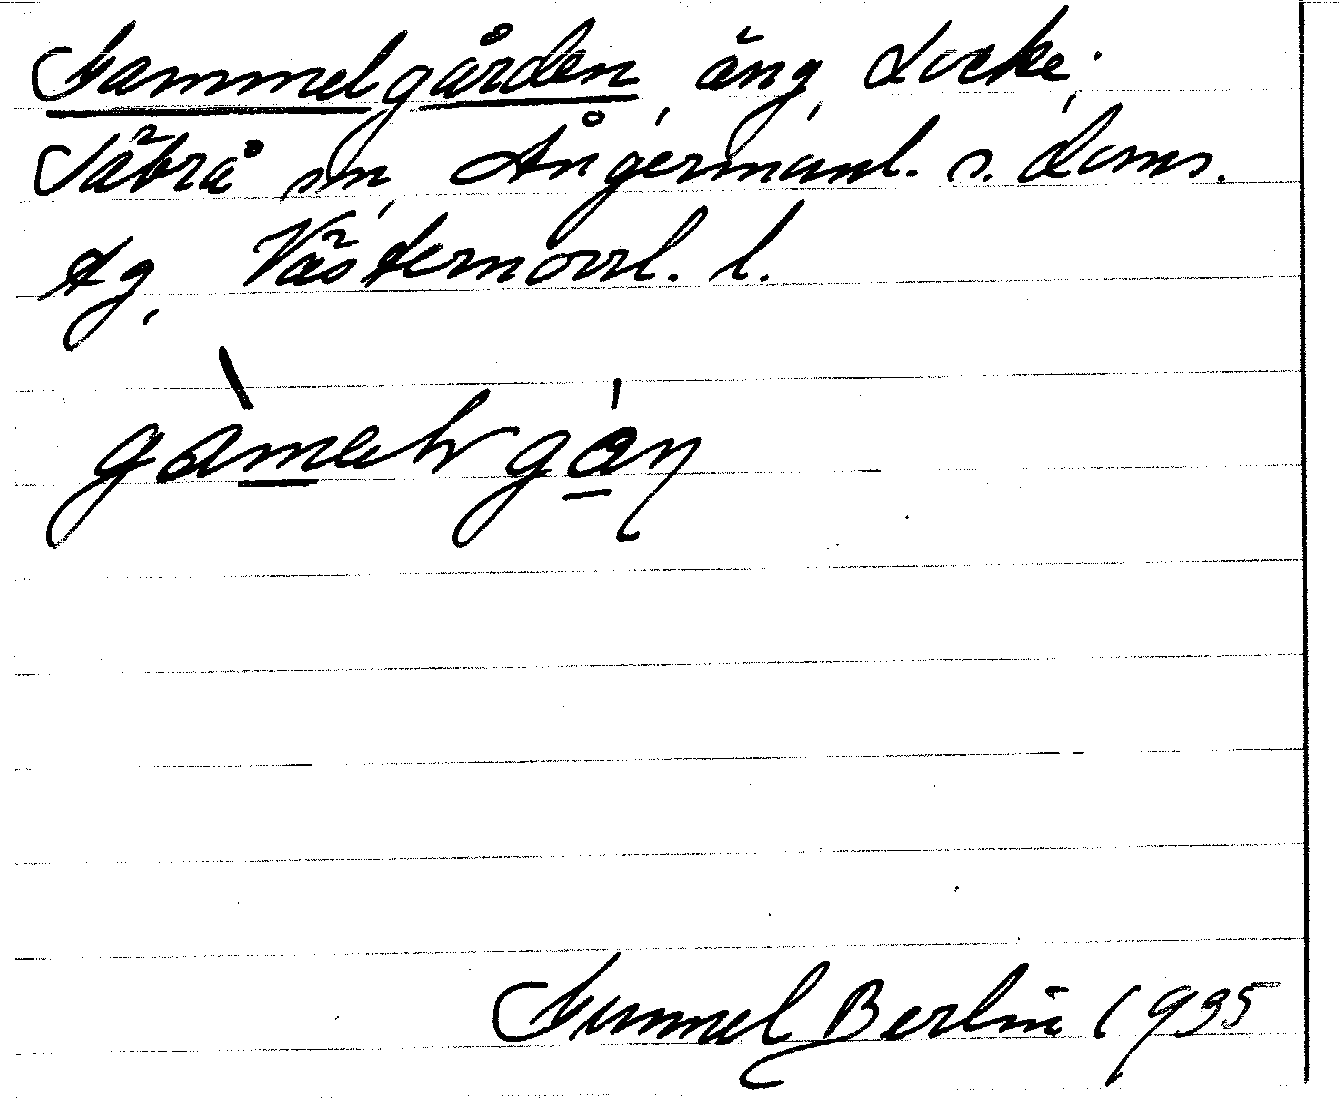 Gammelgården, äng, Locke,
Säbrå sn, Ångermanl. s. Doms.
dg, Västernorrl. l.
gàmelr gán
Gunnel Berlin 1935